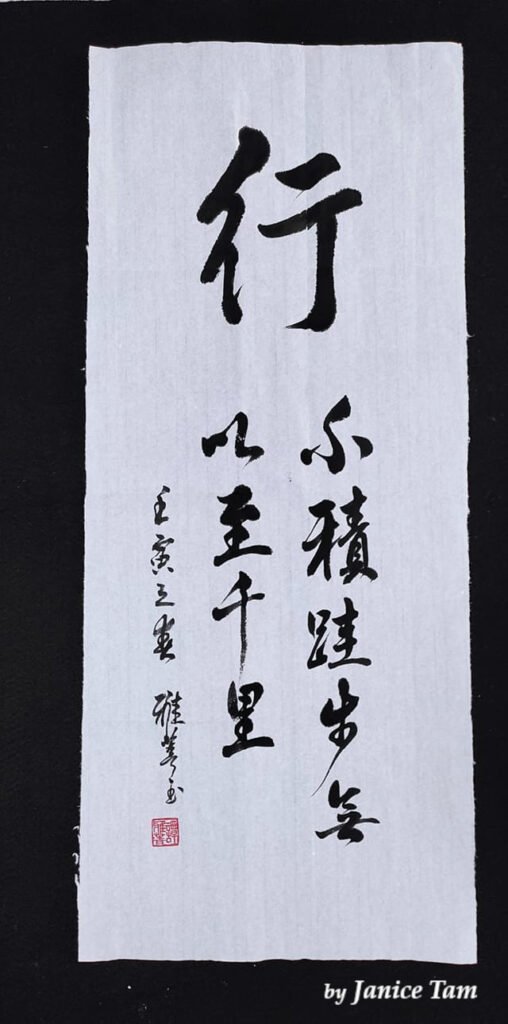 行
不積跬步無
以至千里
壬寅立春 雅菁
by Janice Tam